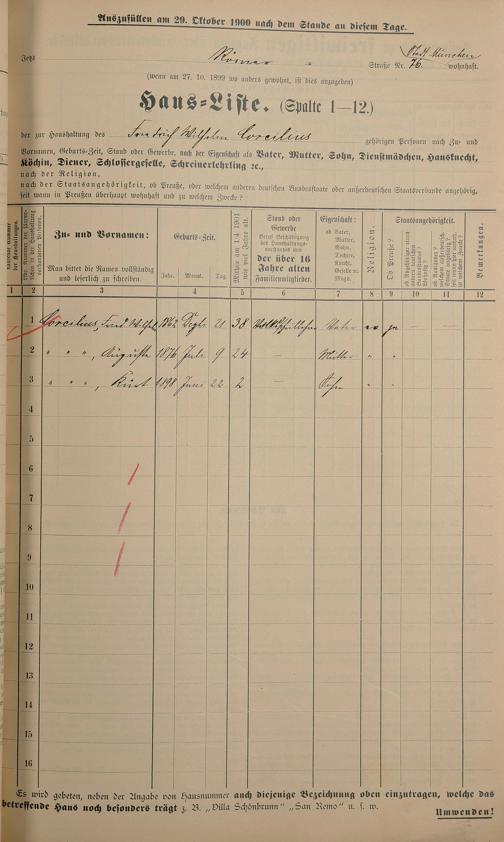 Auszufüllen am 29. Oktober 1900 nach dem Stande an diesem Tage.
Stadt München
Jetzt Römer Straße Nr. 76. wohnhaft.
(wenn am 27. 10. 1899 wo anders gewohnt, ist dies anzugeben)
Haus-Liste. (Spalte 1—12.)
der zur Haushaltung des Friedrich Wilhelm Corcilius gehörigen Personen nach Zu- und
Vornamen, Geburts-Zeit, Stand oder Gewerbe, nach der Eigenschaft als Vater, Mutter, Sohn, Dienstmädchen, Hausknecht,
Köchin, Diener, Schlossergeselle, Schreinerlehrling ꝛc.,
nach der Religion,
nach der Staatsangehörigkeit, ob Preuße, oder welchem anderen deutschen Bundesstaate oder außerdeutschen Staatsverbande angehörig,
seit wann in Preußen überhaupt wohnhaft und zu welchem Zwecke?
Zu- und Vornamen:
Man bittet die Namen vollständig
und leserlich zu schreiben.
Geburts-Zeit.
Jahr. Monat. Tag.
Mithin am 1/4 1901
wie viel Jahre alt.
Stand oder
Gewerbe
der über 16
Jahre alten
Familienmitglieder.
Eigenschaft:
ob Vater,
Mutter,
Sohn,
Tochter,
Knecht,
Geselle o.
Magd.
Religion.
Staatsangehörigkeit.
Ob Preuße?
Bemerkungen.
1 2 3 4 5 6 7 8 9 10 11 12
1 Corcilius, Fried. Wilhel. 1862 21 38 Vater ev ja
2 " " ", Auguste 1876 Juli 9 24 — Mutter " "
3 " " ", Kurt 1898 Juni 22 2 — Sohn " "
4
5
6
7
8
9
10
11
12
13
14
15
16
Es wird gebeten, neben der Angabe von Hausnummer auch diejenige Bezeichnung oben einzutragen, welche das
betreffende Haus noch besonders trägt z. B. "Villa Schönbrunn" "San Remo" u. s. w.
Umwenden!